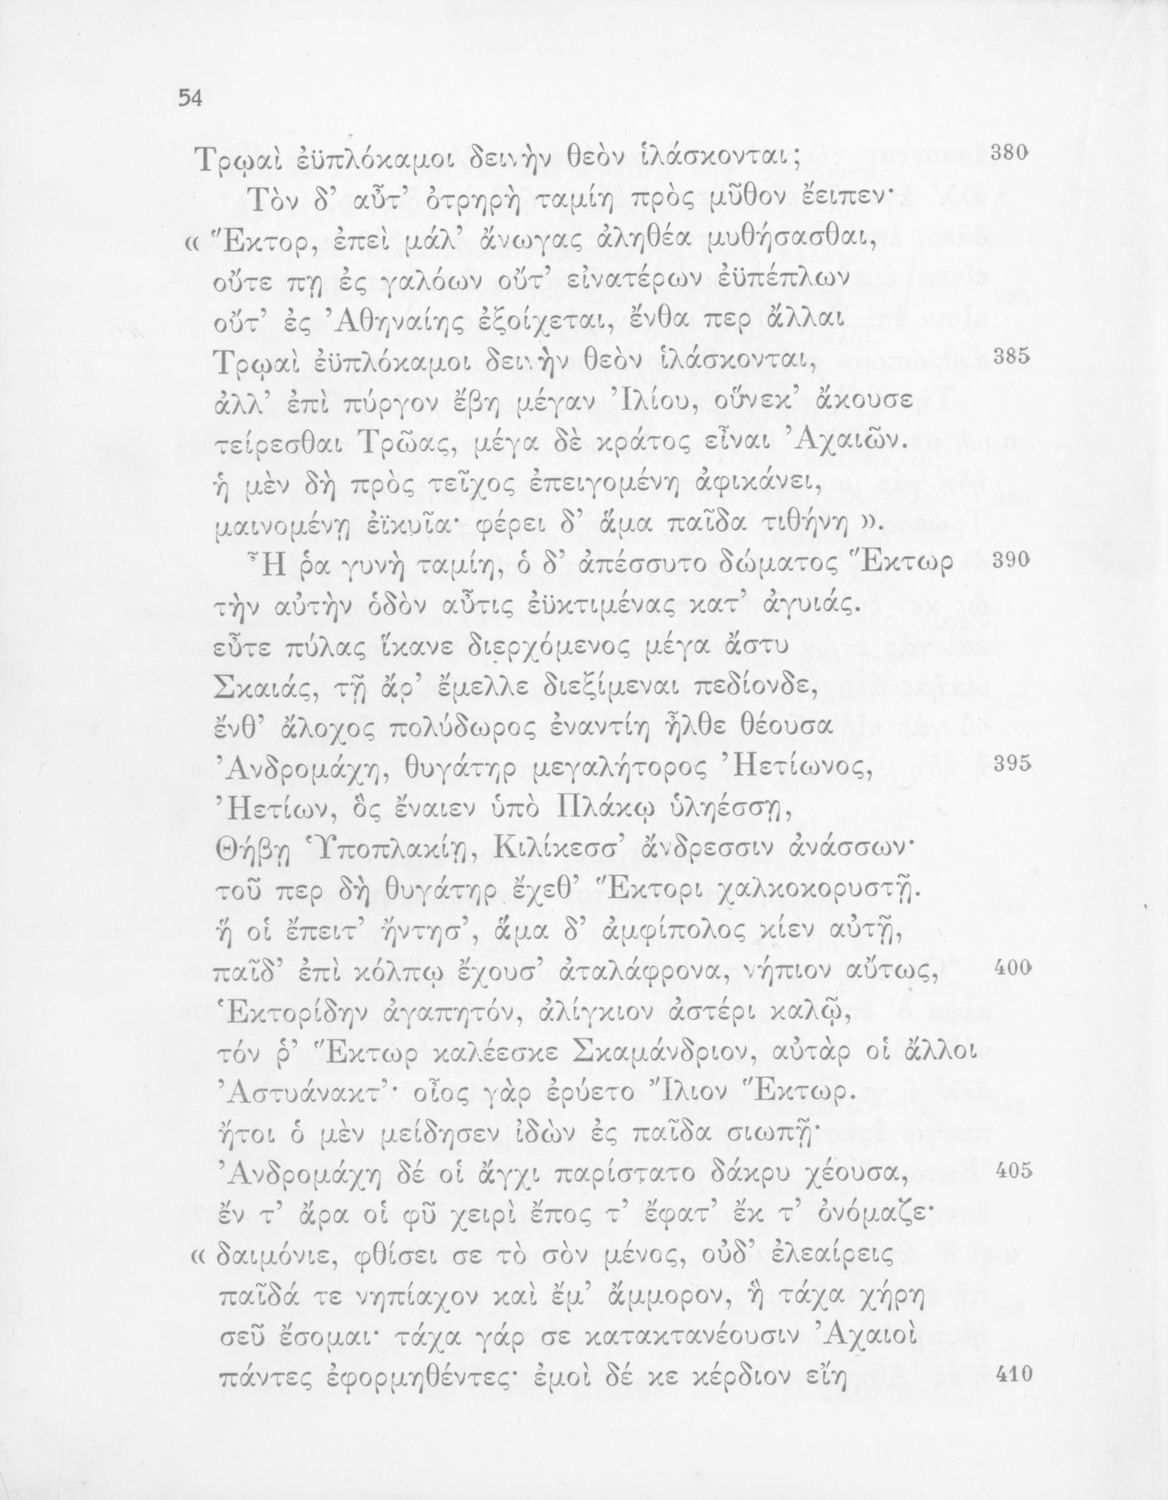 54
Τρῳαὶ ἐϋπλόκαμοι δεινὴν θεὸν ἱλάσκονται; 380
Τὸν δ’ αὖτ’ ὀτρηρὴ ταμίη πρὸς μῦθον ἔειπεν·
« Ἕκτορ, ἐπεὶ μάλ’ ἄνωγας ἀληθέα μυθήσασθαι,
οὔτε πῃ ἐς γαλόων οὔτ’ εἰνατέρων ἐϋπέπλων
οὔτ’ ἐς Ἀθηναίης ἐξοίχεται, ἔνθα περ ἄλλαι
Τρῳαὶ ἐϋπλόκαμοι δεινὴν θεὸν ἱλάσκονται, 385
ἀλλ’ ἐπὶ πύργον ἔβη μέγαν Ἰλίου, οὕνεκ’ ἄκουσε
τείρεσθαι Τρῶας, μέγα δὲ κράτος εἶναι Ἀχαιῶν.
ἡ μὲν δὴ πρὸς τεῖχος ἐπειγομένη ἀφικάνει,
μαινομένῃ ἐϊκυῖα· φέρει δ’ ἅμα παῖδα τιθήνη ».
Ἦ ῥα γυνὴ ταμίη, ὁ δ’ ἀπέσσυτο δώματος Ἕκτωρ 390
τὴν αὐτὴν ὁδὸν αὖτις ἐϋκτιμένας κατ’ ἀγυιάς.
εὖτε πύλας ἵκανε διερχόμενος μέγα ἄστυ
Σκαιάς, τῇ ἄρ’ ἔμελλε διεξίμεναι πεδίονδε,
ἔνθ’ ἄλοχος πολύδωρος ἐναντίη ἦλθε θέουσα
Ἀνδρομάχη, θυγάτηρ μεγαλήτορος Ἠετίωνος, 395
Ἠετίων, ὃς ἔναιεν ὑπὸ Πλάκῳ ὑληέσσῃ,
Θήβῃ Ὑποπλακίῃ, Κιλίκεσσ’ ἄνδρεσσιν ἀνάσσων·
τοῦ περ δὴ θυγάτηρ ἔχεθ’ Ἕκτορι χαλκοκορυστῇ.
ἥ οἱ ἔπειτ’ ἤντησ’, ἅμα δ’ ἀμφίπολος κίεν αὐτῇ,
παῖδ’ ἐπὶ κόλπῳ ἔχουσ’ ἀταλάφρονα, νήπιον αὔτως, 400
Ἑκτορίδην ἀγαπητόν, ἀλίγκιον ἀστέρι καλῷ,
τόν ῥ’ Ἕκτωρ καλέεσκε Σκαμάνδριον, αὐτὰρ οἱ ἄλλοι
Ἀστυάνακτ’· οἶος γὰρ ἐρύετο Ἴλιον Ἕκτωρ.
ἤτοι ὁ μὲν μείδησεν ἰδὼν ἐς παῖδα σιωπῇ·
Ἀνδρομάχη δέ οἱ ἄγχι παρίστατο δάκρυ χέουσα, 405
ἔν τ’ ἄρα οἱ φῦ χειρὶ ἔπος τ’ ἔφατ’ ἔκ τ’ ὀνόμαζε·
« δαιμόνιε, φθίσει σε τὸ σὸν μένος, οὐδ’ ἐλεαίρεις
παῖδά τε νηπίαχον καὶ ἔμ’ ἄμμορον, ἣ τάχα χήρη
σεῦ ἔσομαι· τάχα γάρ σε κατακτανέουσιν Ἀχαιοὶ
πάντες ἐφορμηθέντες· ἐμοὶ δέ κε κέρδιον εἴη 410